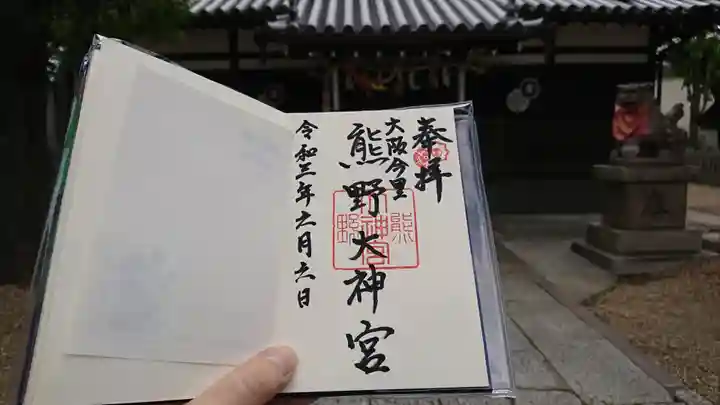 奉拝
大阪今里
熊野大神宮
熊野大神宮
令和三年六月六日